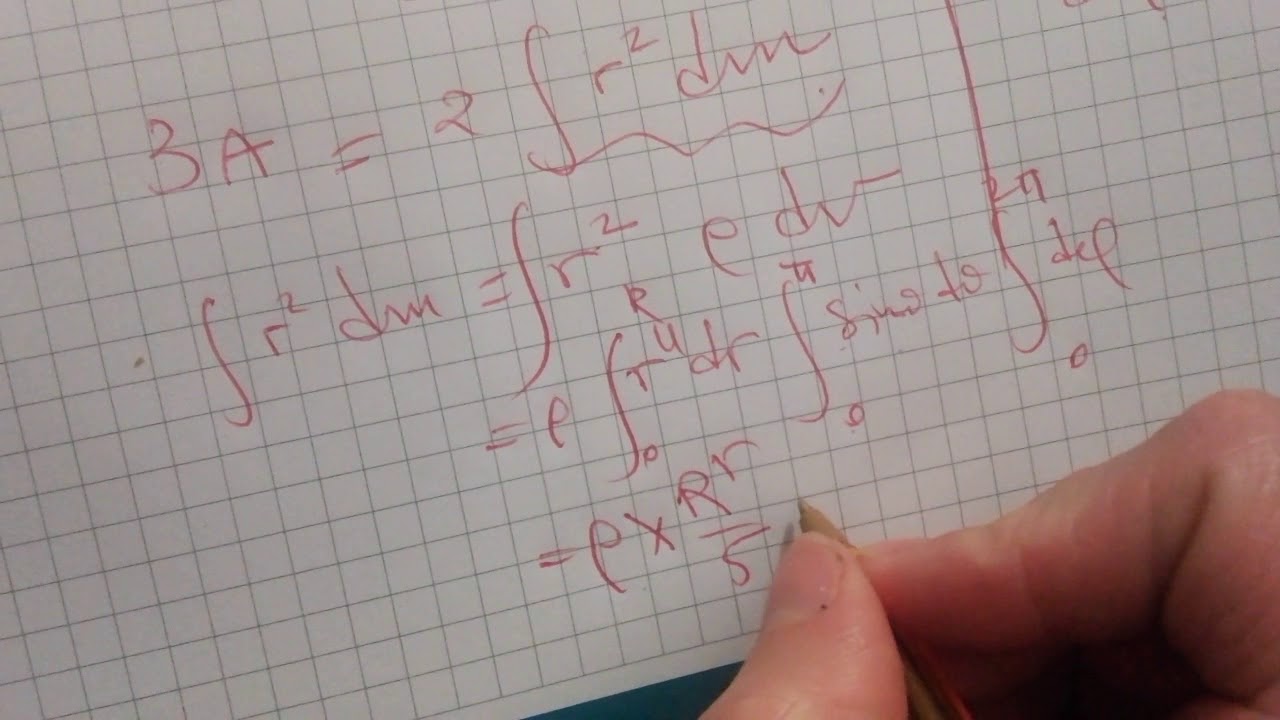 3A = 2 ∫ r² dm
∫ r² dm = ∫ r² ρ dv
= ρ ∫₀ᴿ r⁴ dr ∫₀^π sinθ dθ ∫₀^2π dφ
= ρ × R⁵/5